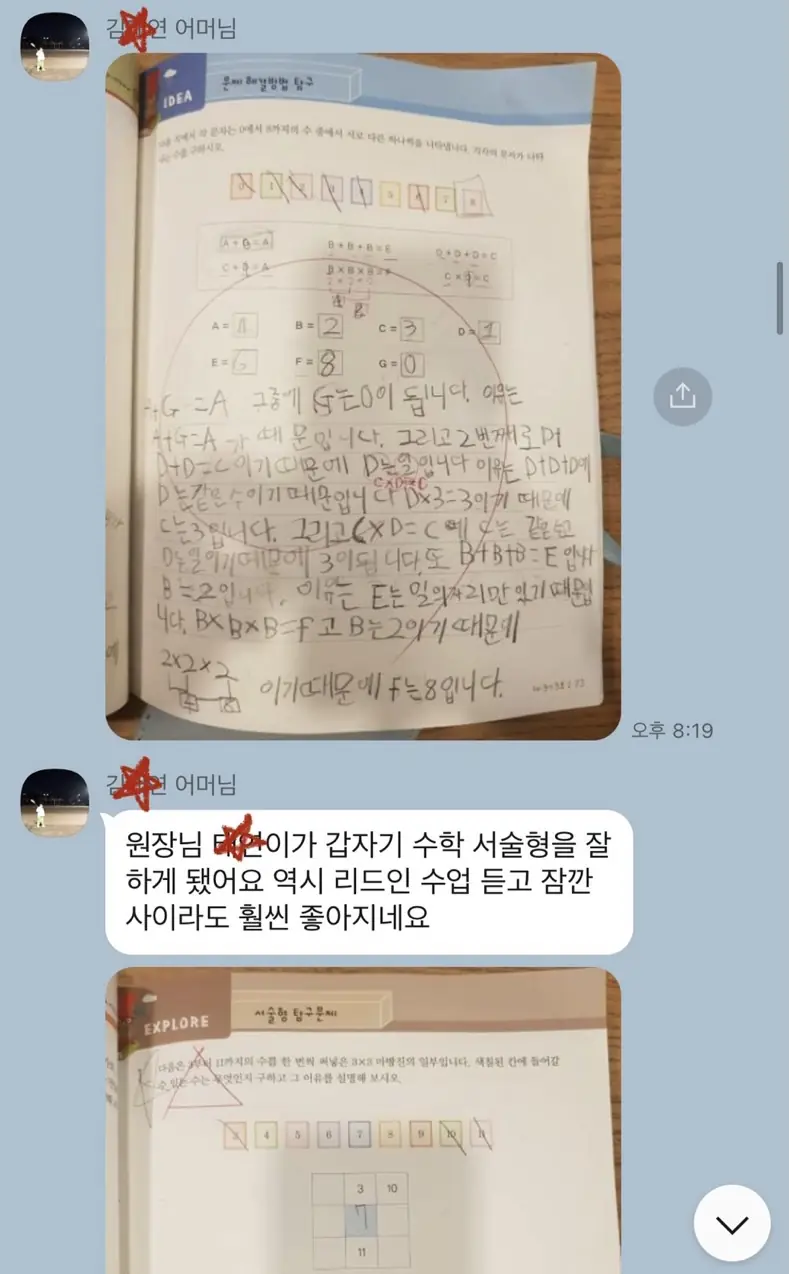 김 연 어머님
IDEA
문제 해결방법 탐구
다음 식에서 각 문자는 0에서 8까지의 수 중에서 서로 다른 하나씩을 나타냅니다. 각각의 문자가 나타
내는 수를 구하시오.
0 1 2 3 4 5 6 7 8
A+G=A B+B+B=E D+D+D=C
C+ =A B×B×B=F C× =C
2×2×2
4
8
A= B=2 C=3 D=1
E=6 F=8 G=0
G=A 그중에 G는 0이 됩니다. 이유는
A+G=A 가 때문입니다. 그리고 2번째로 D+
D+D=C이기 때문에 D는 일입니다 이유는 D+D+D에
C×D=C
D는 같은 수이기 때문입니다 D×3=3이기 때문에
C는 3입니다. 그리고 C×D=C에 C는 같은 수고
D는 일이기 때문에 3이 됩니다. 또 B+B+B=E 입니다
B=2입니다. 이유는 E는 일의 자리만 있기 때문입
니다. B×B×B=F고 B는 2이기 때문에
2×2×2
4 8 이기 때문에 F는 8입니다.
오후 8:19
김 연 어머님
원장님 연이가 갑자기 수학 서술형을 잘
하게 됐어요 역시 리드인 수업 듣고 잠깐
사이라도 훨씬 좋아지네요
EXPLORE
서술형 탐구문제
다음은 3부터 11까지의 수를 한 번씩 써넣은 3×3 마방진의 일부입니다. 색칠된 칸에 들어갈
수 있는 수는 무엇인지 구하고 그 이유를 설명해 보시오.
3 4 5 6 7 8 9 10 11
3 10
7
11